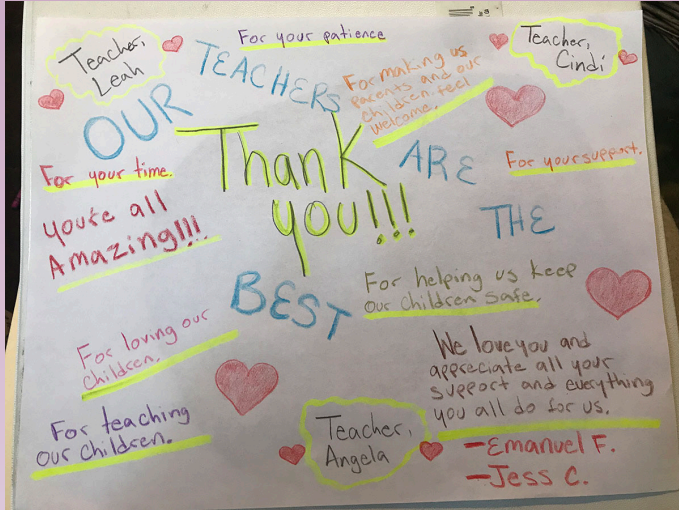 Teacher,
Leah
For your patience
Teacher,
Cindi
OUR TEACHERS
For making us
parents and our
children feel
welcome.
Thank
you!!!
ARE
THE
BEST
For your time.
For your support.
you're all
Amazing!!!
For helping us keep
our children safe.
For loving our
children.
We love you and
appreciate all your
support and everything
you all do for us.
For teaching
our children.
Teacher,
Angela
-Emanuel F.
-Jess C.